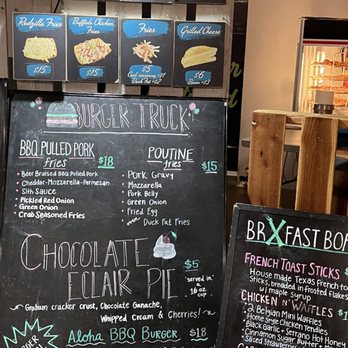 Rodzilla Fries
$15
Buffalo Chicken Fries
$15
Fries
$5
Grilled Cheese
$6
BURGER TRUCK
BBQ PULLED PORK
fries
$18
• Beer Braised BBQ Pulled Pork
• Cheddar-Mozzarella-Parmesan
• Sith Sauce
• Pickled Red Onion
• Green Onion
• Crab Seasoned Fries
POUTINE
fries
$15
• Pork Gravy
• Mozzarella
• Pork Belly
• Green Onion
• Fried Egg
Duck Fat Fries
CHOCOLATE
ECLAIR PIE
$5
served in a 16 oz cup
Graham cracker crust, Chocolate Ganache,
Whipped Cream & Cherries!
Aloha BBQ Burger $18
BRXFAST
FRENCH TOAST STICKS
House made Texas French
sticks, breaded in Frosted Flakes
w/ maple syrup
CHICKEN N' WAFFLES
2 Belgian Mini Waffles
Home made chicken tendies
Black garlic - Serrano Hot Honey